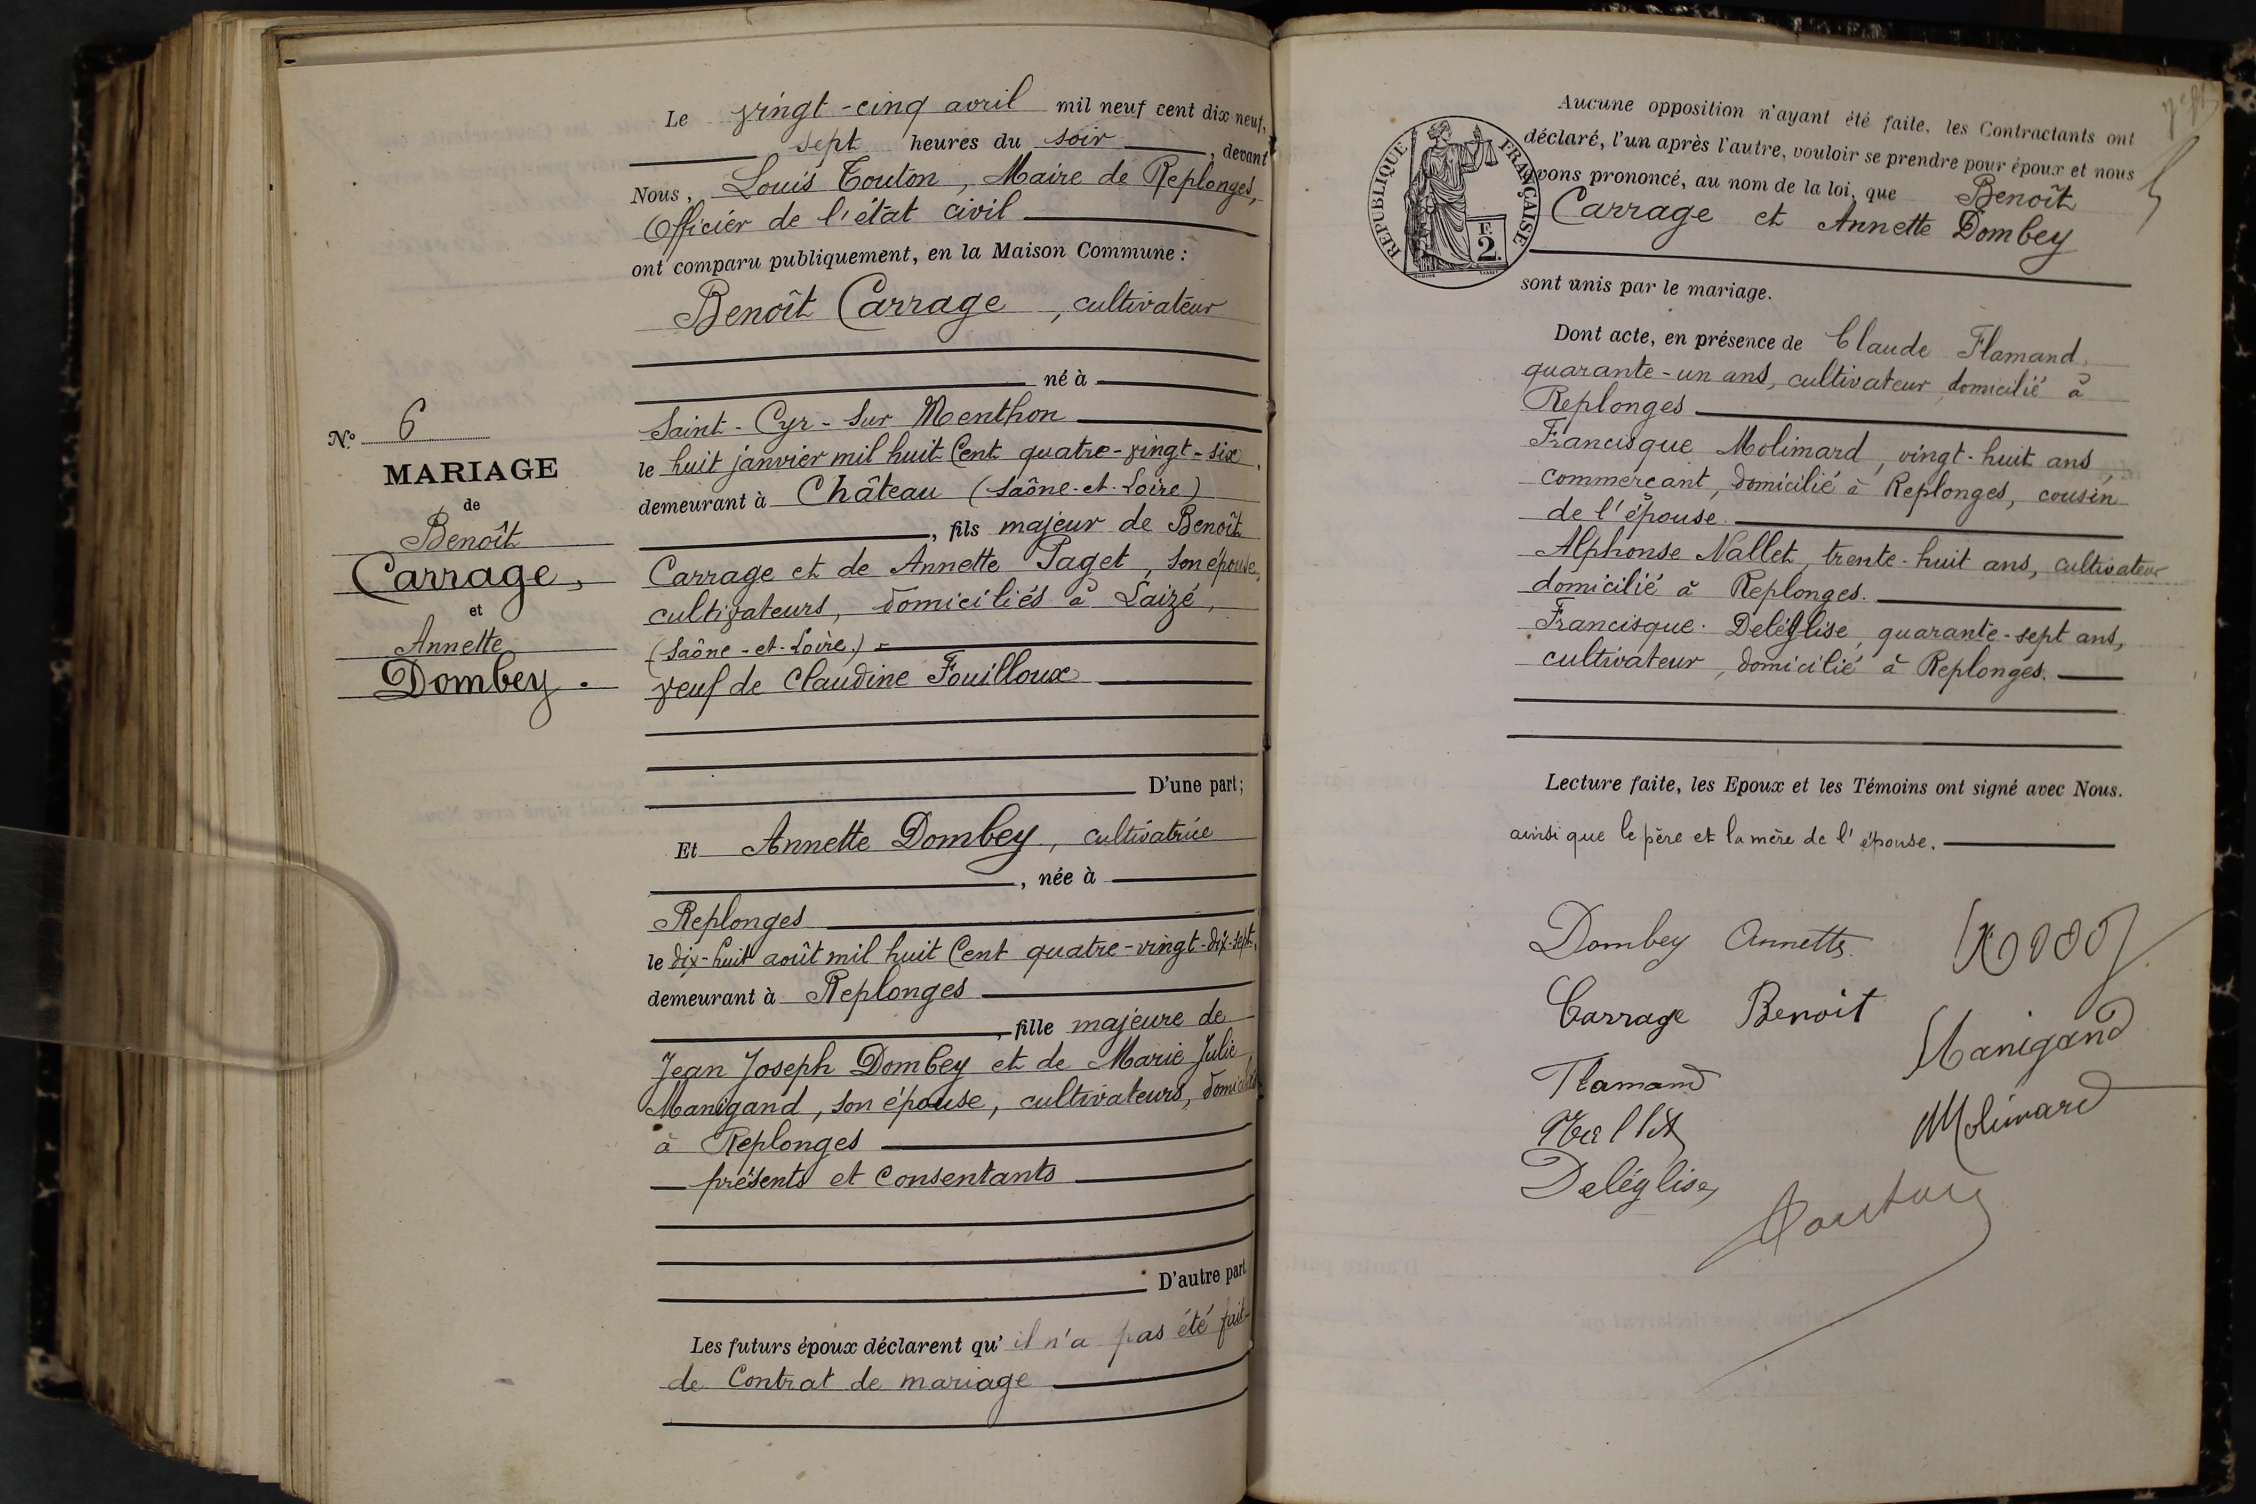 Le vingt-cinq avril mil neuf cent dix neuf,
sept heures du soir, devant
Nous, Louis Touton, Maire de Replonges,
Officier de l'état civil
ont comparu publiquement, en la Maison Commune :
Benoît Carrage, cultivateur
né à
Saint-Cyr-sur Menthon
le huit janvier mil huit Cent quatre-vingt-six,
demeurant à Château (Saône-et-Loire)
, fils majeur de Benoît
Carrage et de Annette Paget, son épouse,
cultivateurs, domiciliés à Laizé,
(Saône-et-Loire.)
veuf de Claudine Fouilloux
D'une part;
Et Annette Dombey, cultivatrice
, née à
Replonges
le dix-huit août mil huit Cent quatre-vingt-dix-sept,
demeurant à Replonges
, fille majeure de
Jean Joseph Dombey et de Marie Julie
Manigand, son épouse, cultivateurs, domiciliés
à Replonges
présents et consentants
D'autre part
Les futurs époux déclarent qu'il n'a pas été fait
de Contrat de mariage
N° 6
MARIAGE
de
Benoît
Carrage,
et
Annette
Dombey.
Aucune opposition n'ayant été faite, les Contractants ont
déclaré, l'un après l'autre, vouloir se prendre pour époux et nous
avons prononcé, au nom de la loi, que Benoît
Carrage et Annette Dombey
sont unis par le mariage.
RÉPUBLIQUE FRANÇAISE
F.
2.
Dont acte, en présence de Claude Flamand,
quarante-un ans, cultivateur, domicilié à
Replonges
Francisque Molimard, vingt-huit ans,
commerçant, domicilié à Replonges, cousin
de l'épouse.
Alphonse Nallet, trente-huit ans, cultivateur
domicilié à Replonges.
Francisque Deléglise, quarante-sept ans,
cultivateur, domicilié à Replonges.
Lecture faite, les Epoux et les Témoins ont signé avec Nous.
ainsi que le père et la mère de l'épouse.
Dombey Annette
Carrage Benoit
Manigand
Flamand
Molimard
Nallet
Deléglise
Touton